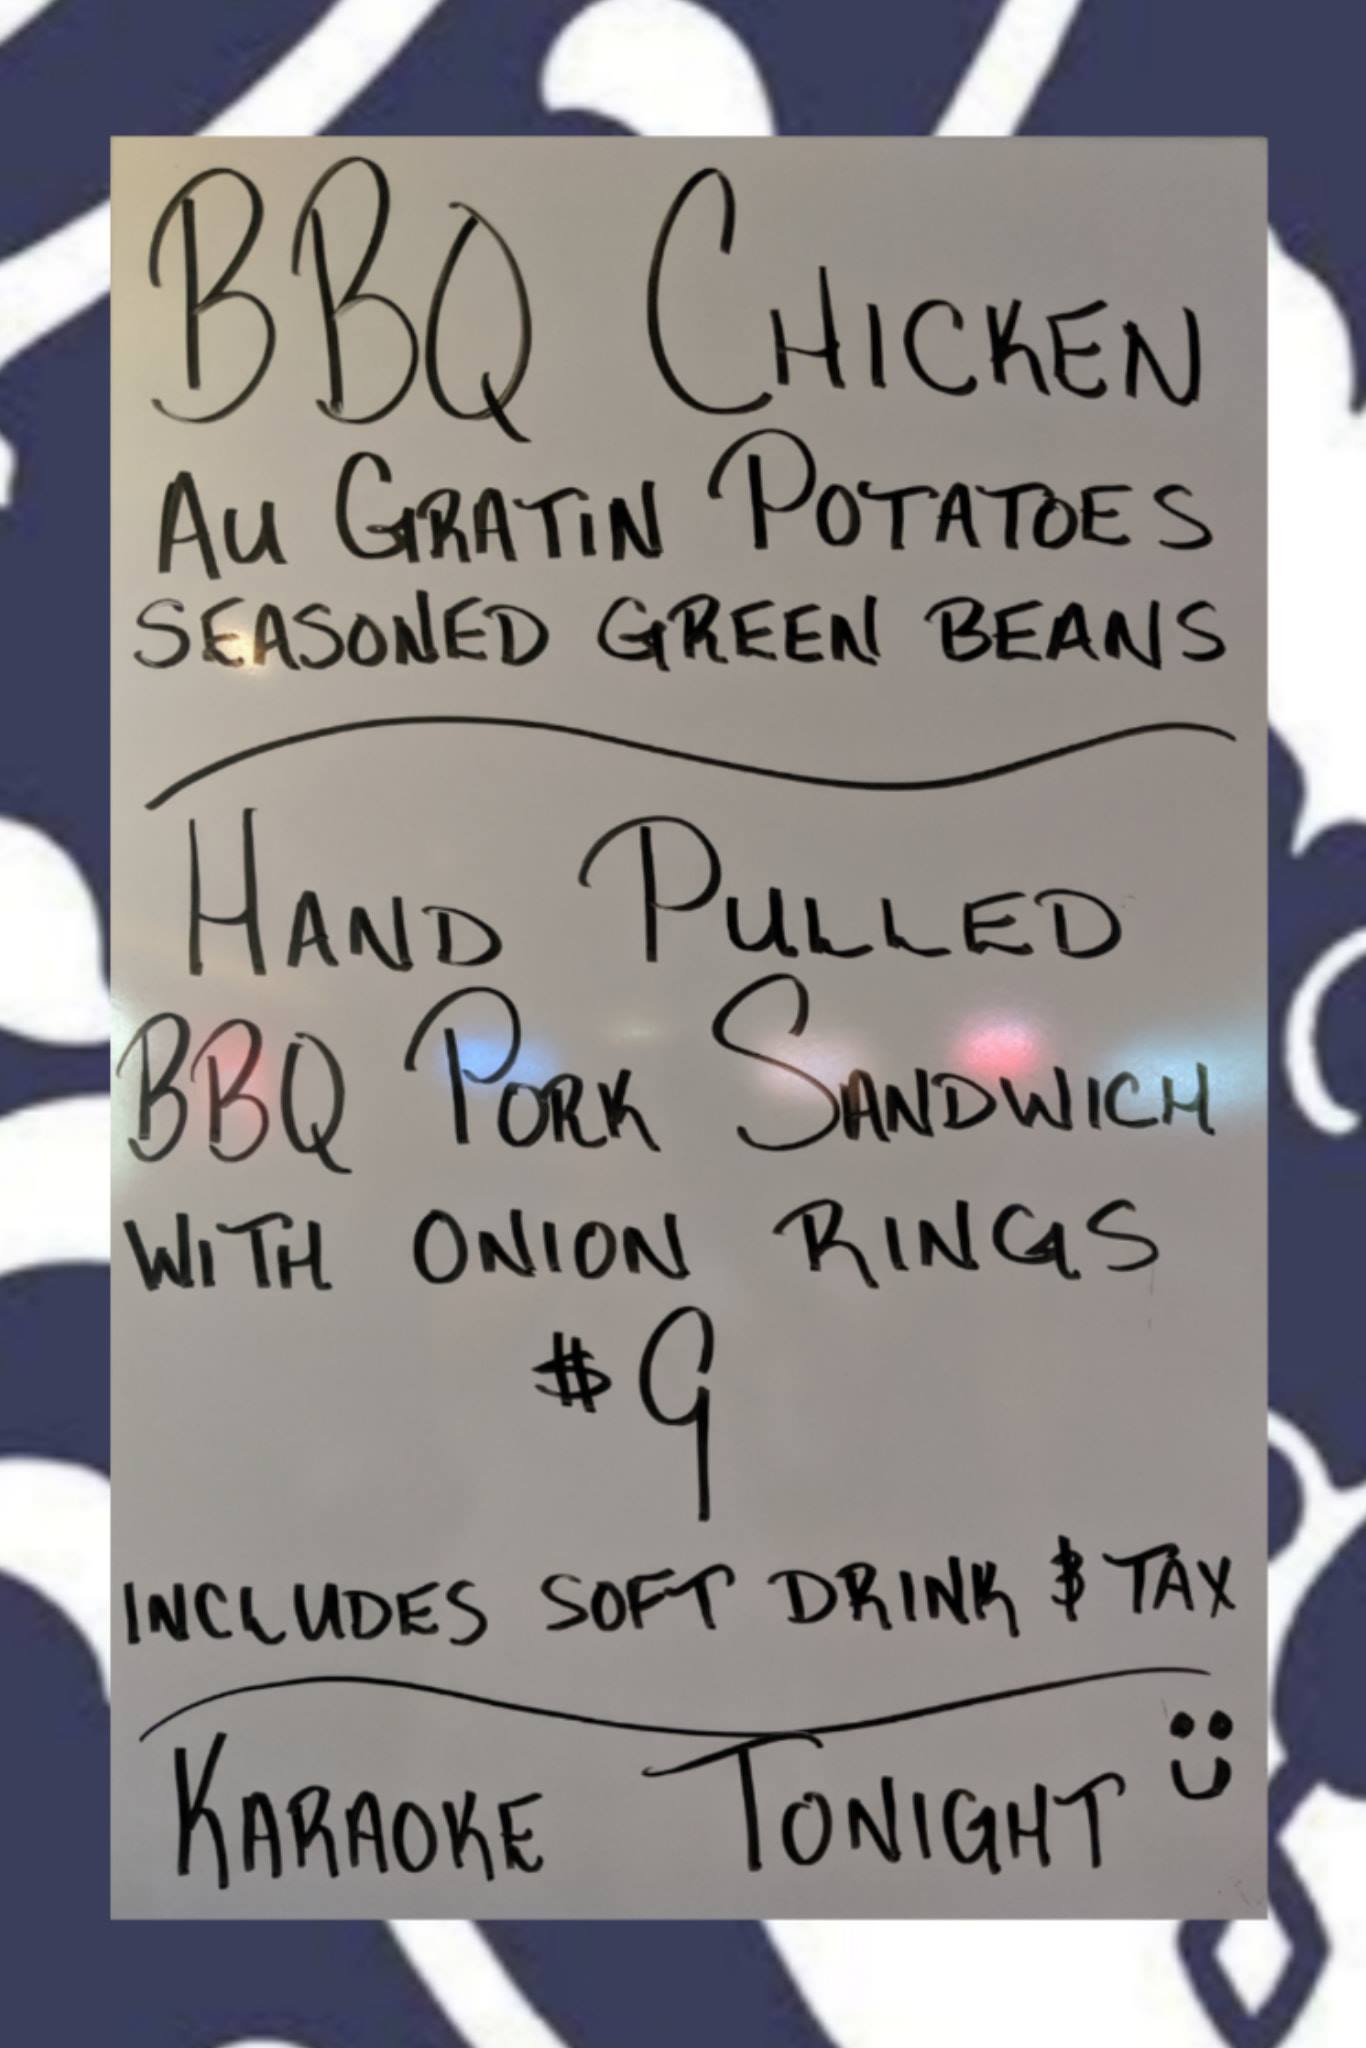 BBQ CHICKEN
AU GRATIN POTATOES
SEASONED GREEN BEANS
HAND PULLED
BBQ PORK SANDWICH
WITH ONION RINGS
$9
INCLUDES SOFT DRINK & TAX
KARAOKE TONIGHT